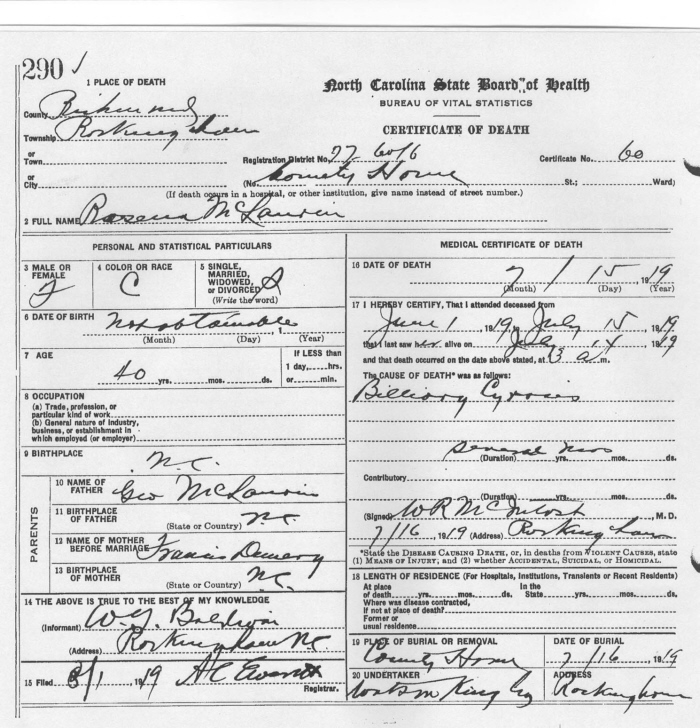 290 √
1 PLACE OF DEATH
North Carolina State Board of Health
BUREAU OF VITAL STATISTICS
County Richmond
CERTIFICATE OF DEATH
Township Rockingham
or
Town
Registration District No. 77 6016
Certificate No. 60
or
City
(No. County Home St.; Ward)
(If death occurs in a hospital, or other institution, give name instead of street number.)
2 FULL NAME Rosena McLaurin
PERSONAL AND STATISTICAL PARTICULARS
3 MALE OR FEMALE F
4 COLOR OR RACE C
5 SINGLE, MARRIED, WIDOWED, OR DIVORCED S
(Write the word)
6 DATE OF BIRTH Not obtainable, 1
(Month) (Day) (Year)
7 AGE
40 yrs. mos. ds.
If LESS than
1 day, hrs.
or min.
8 OCCUPATION
(a) Trade, profession, or
particular kind of work
(b) General nature of Industry,
business, or establishment in
which employed (or employer)
9 BIRTHPLACE
N.C.
PARENTS
10 NAME OF FATHER Geo McLaurin
11 BIRTHPLACE OF FATHER N.C.
(State or Country)
12 NAME OF MOTHER BEFORE MARRIAGE Francis Demery
13 BIRTHPLACE OF MOTHER N.C.
(State or Country)
14 THE ABOVE IS TRUE TO THE BEST OF MY KNOWLEDGE
(Informant) Baldwin
(Address) Rockingham NC
15 Filed 8/1 1919 Everett
Registrar.
MEDICAL CERTIFICATE OF DEATH
16 DATE OF DEATH 7 / 15, 1919
(Month) (Day) (Year)
17 I HEREBY CERTIFY, That I attended deceased from
June 1 1919, to July 15 1919
that I last saw her alive on July 14 1919
and that death occurred on the date above stated, at 3 a m.
The CAUSE OF DEATH* was as follows:
Billiary Cyrosis
several mos
(Duration) yrs. mos. ds.
Contributory
(Duration) yrs. mos. ds.
(Signed) WR McIntosh, M.D.
7/16, 1919 (Address) Rockingham
*State the DISEASE CAUSING DEATH, or, in deaths from VIOLENT CAUSES, state
(1) MEANS OF INJURY; and (2) whether ACCIDENTAL, SUICIDAL, or HOMICIDAL.
18 LENGTH OF RESIDENCE (For Hospitals, Institutions, Transients or Recent Residents)
At place of death yrs. mos. ds. In the State yrs. mos. ds.
Where was disease contracted,
if not at place of death?
Former or
usual residence
19 PLACE OF BURIAL OR REMOVAL
County Home
DATE OF BURIAL
7/16 1919
20 UNDERTAKER
Watson King
ADDRESS
Rockingham